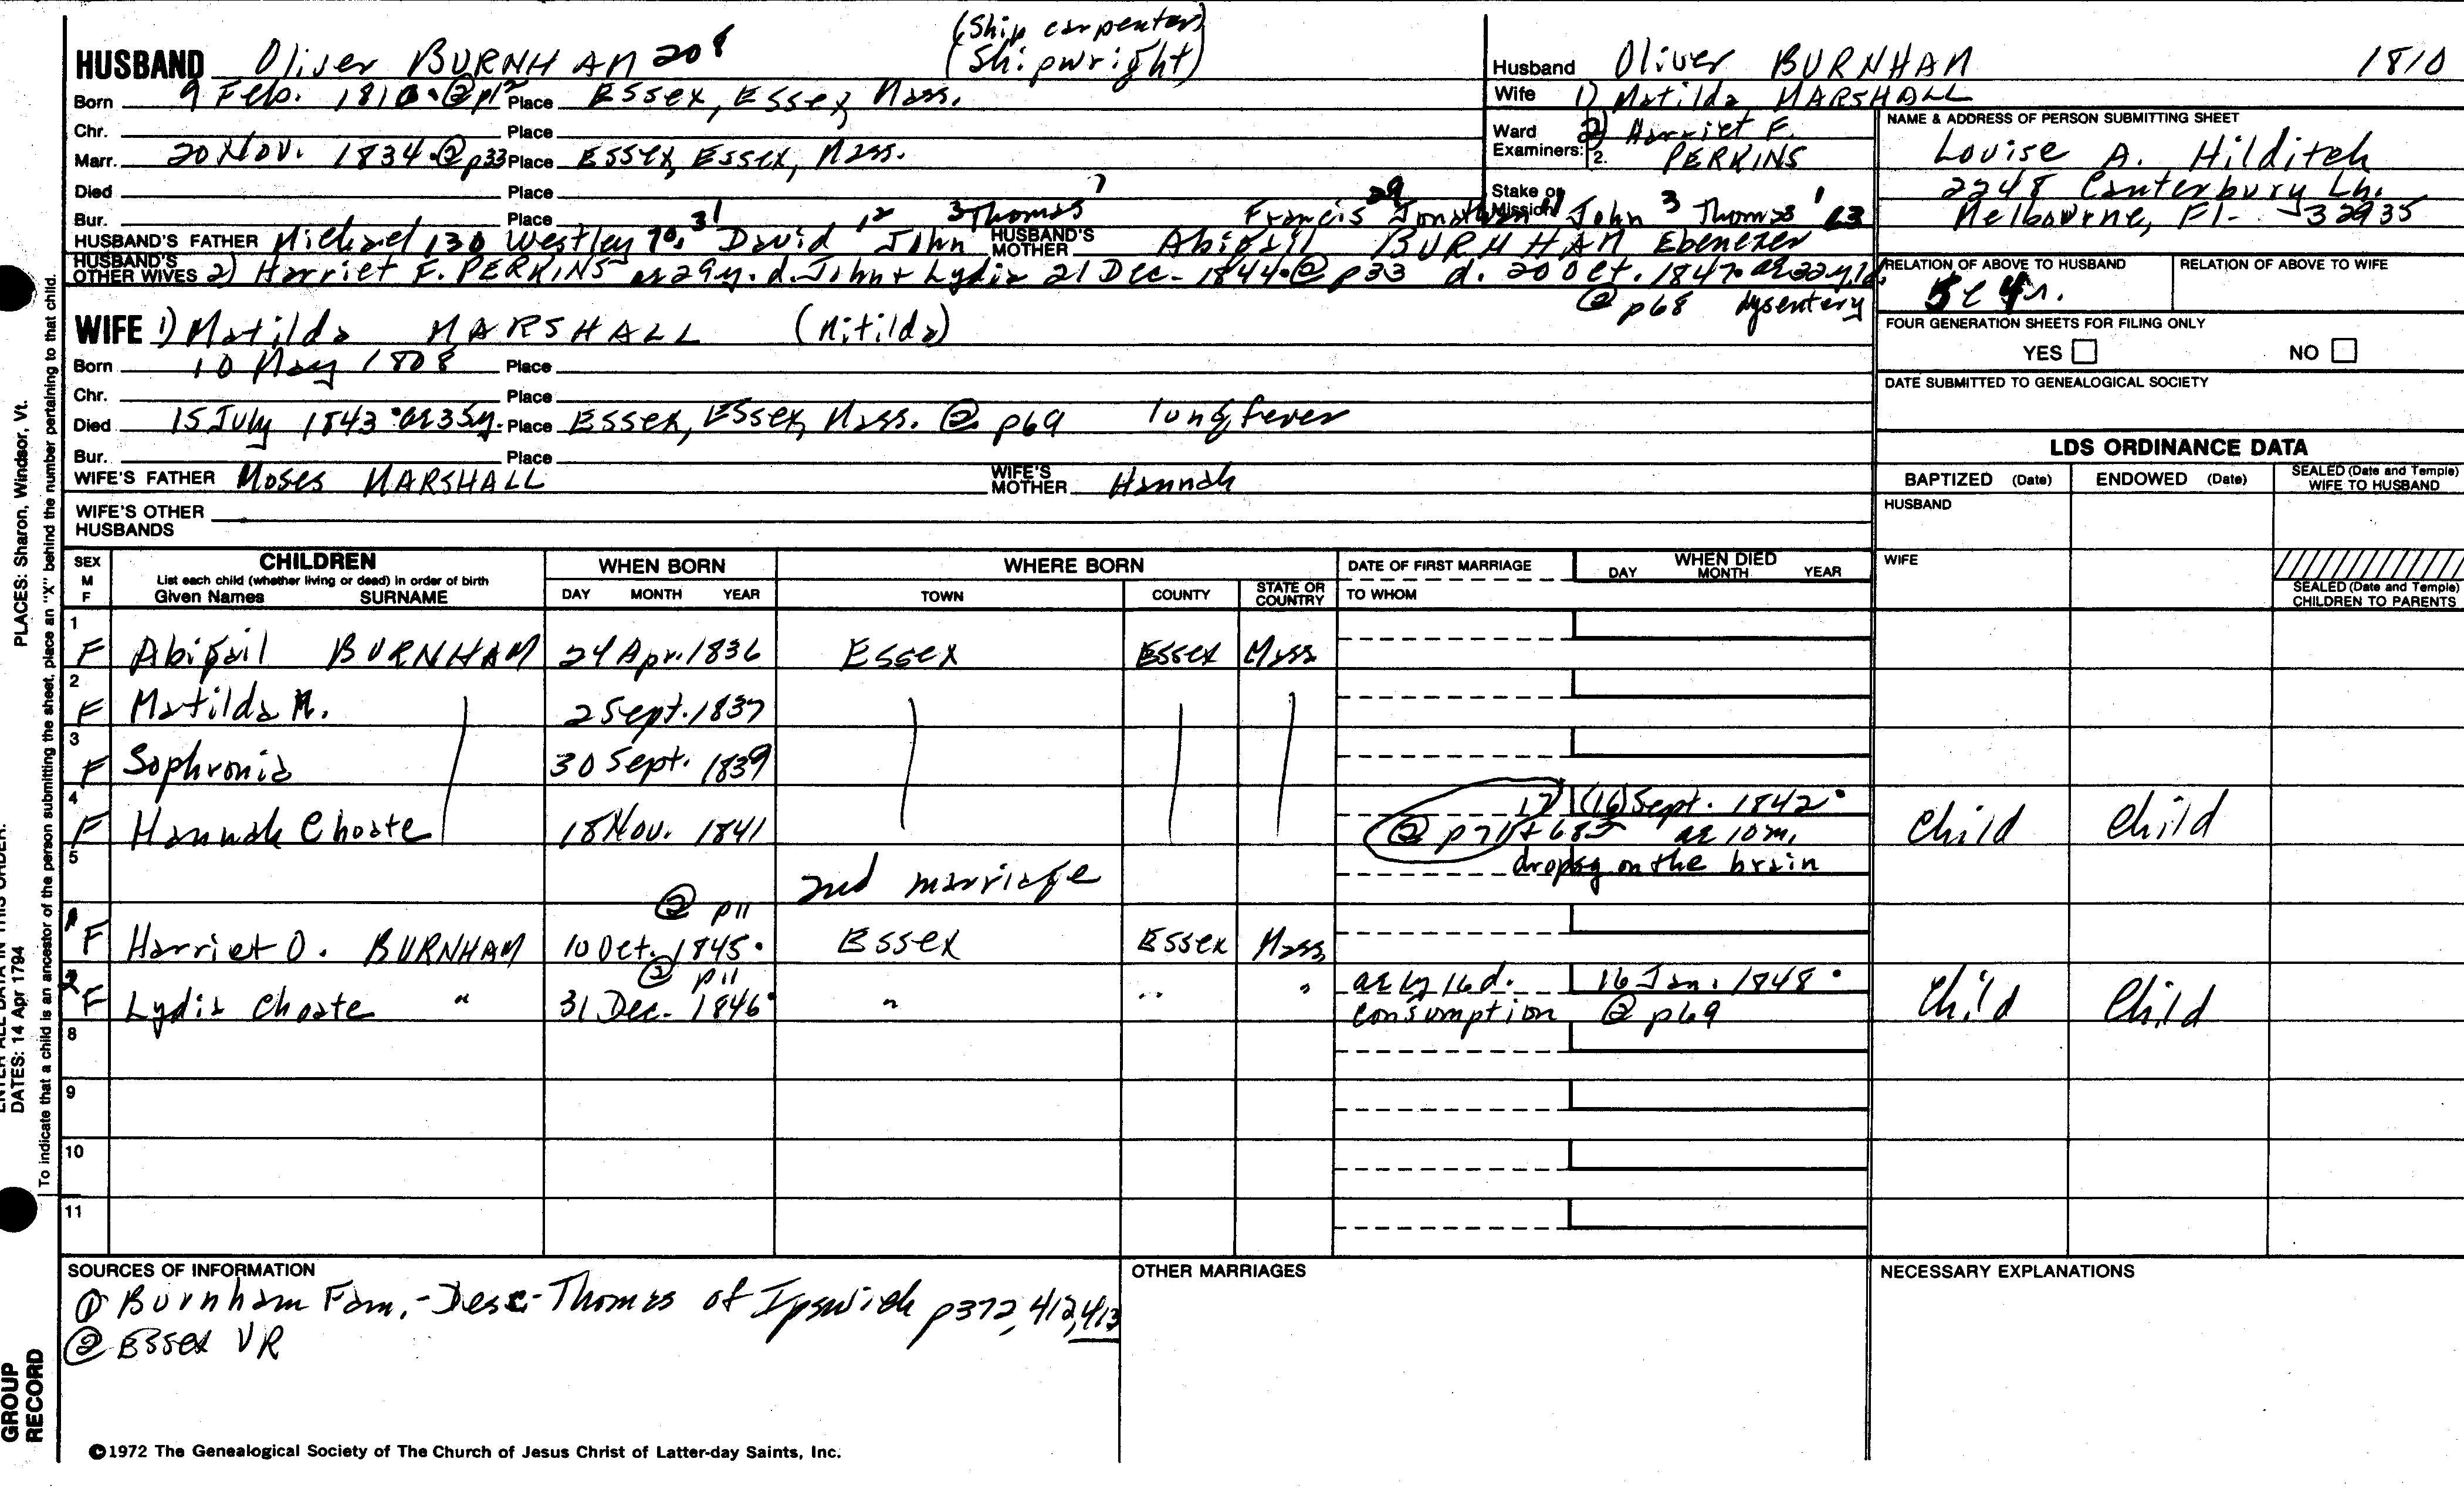 (Ship carpenter)
HUSBAND Oliver BURNHAM 208 (Shipwright)
Born 9 Feb. 1810. @ p12 Place Essex, Essex, Mass.
Chr. Place
Marr. 20 Nov. 1834. @ p33 Place Essex, Essex, Mass.
Died Place
Bur. Place
HUSBAND'S FATHER Michael 130 Westley 70, 31 David 12 John 3 Thomas 1 HUSBAND'S MOTHER Abigail BURNHAM Francis 29 Jonathan 11 John 3 Thomas 1 Ebenezer 63
HUSBAND'S OTHER WIVES 2) Harriet F. PERKINS ae 29y. d. John + Lydia 21 Dec. 1844. @ p33 d. 20 Oct. 1847. ae 32y
@ p68 dysentery
WIFE 1) Matilda MARSHALL (Mitilda)
Born 10 May 1808 Place
Chr. Place
Died 15 July 1843. ae 35y. Place Essex, Essex, Mass. @ p69 lung fever
Bur. Place
WIFE'S FATHER Moses MARSHALL WIFE'S MOTHER Hannah
WIFE'S OTHER HUSBANDS
Husband Oliver BURNHAM 1810
Wife 1) Matilda MARSHALL
Ward Examiners: 2) Harriet F.
2. PERKINS
Stake or Mission
NAME & ADDRESS OF PERSON SUBMITTING SHEET
Louise A. Hilditch
2248 Canterbury Ln.
Melbourne, Fl- 32935
RELATION OF ABOVE TO HUSBAND RELATION OF ABOVE TO WIFE
5c 4r.
FOUR GENERATION SHEETS FOR FILING ONLY
YES NO
DATE SUBMITTED TO GENEALOGICAL SOCIETY
LDS ORDINANCE DATA
BAPTIZED (Date) ENDOWED (Date) SEALED (Date and Temple) WIFE TO HUSBAND
HUSBAND
WIFE
SEALED (Date and Temple) CHILDREN TO PARENTS
SEX M F CHILDREN WHEN BORN WHERE BORN DATE OF FIRST MARRIAGE WHEN DIED
List each child (whether living or dead) in order of birth
Given Names SURNAME DAY MONTH YEAR TOWN COUNTY STATE OR COUNTRY TO WHOM DAY MONTH YEAR
1 F Abigail BURNHAM 24 Apr. 1836 Essex Essex Mass
2 F Matilda M. 2 Sept. 1837
3 F Sophronia 30 Sept. 1839
4 F Hannah Choate 18 Nov. 1841 17 (16) Sept. 1842. Child Child
@ p71+68 ae 10m.
5 dropsy on the brain
2nd marriage
@ p11
1 F Harriet O. BURNHAM 10 Oct. 1845. Essex Essex Mass
@ p11
2 F Lydia Choate " 31 Dec. 1846. " " " ae 1y 16d. 16 Jan. 1848. Child Child
consumption @ p69
8
9
10
11
SOURCES OF INFORMATION
① Burnham Fam.-Desc-Thomas of Ipswich p372, 412, 413
② Essex VR
OTHER MARRIAGES
NECESSARY EXPLANATIONS
©1972 The Genealogical Society of The Church of Jesus Christ of Latter-day Saints, Inc.
PLACES: Sharon, Windsor, Vt.
ENTER ALL DATA IN THIS ORDER:
DATES: 14 Apr 1794
To indicate that a child is an ancestor of the person submitting the sheet, place an "X" behind the number pertaining to that child.
GROUP RECORD